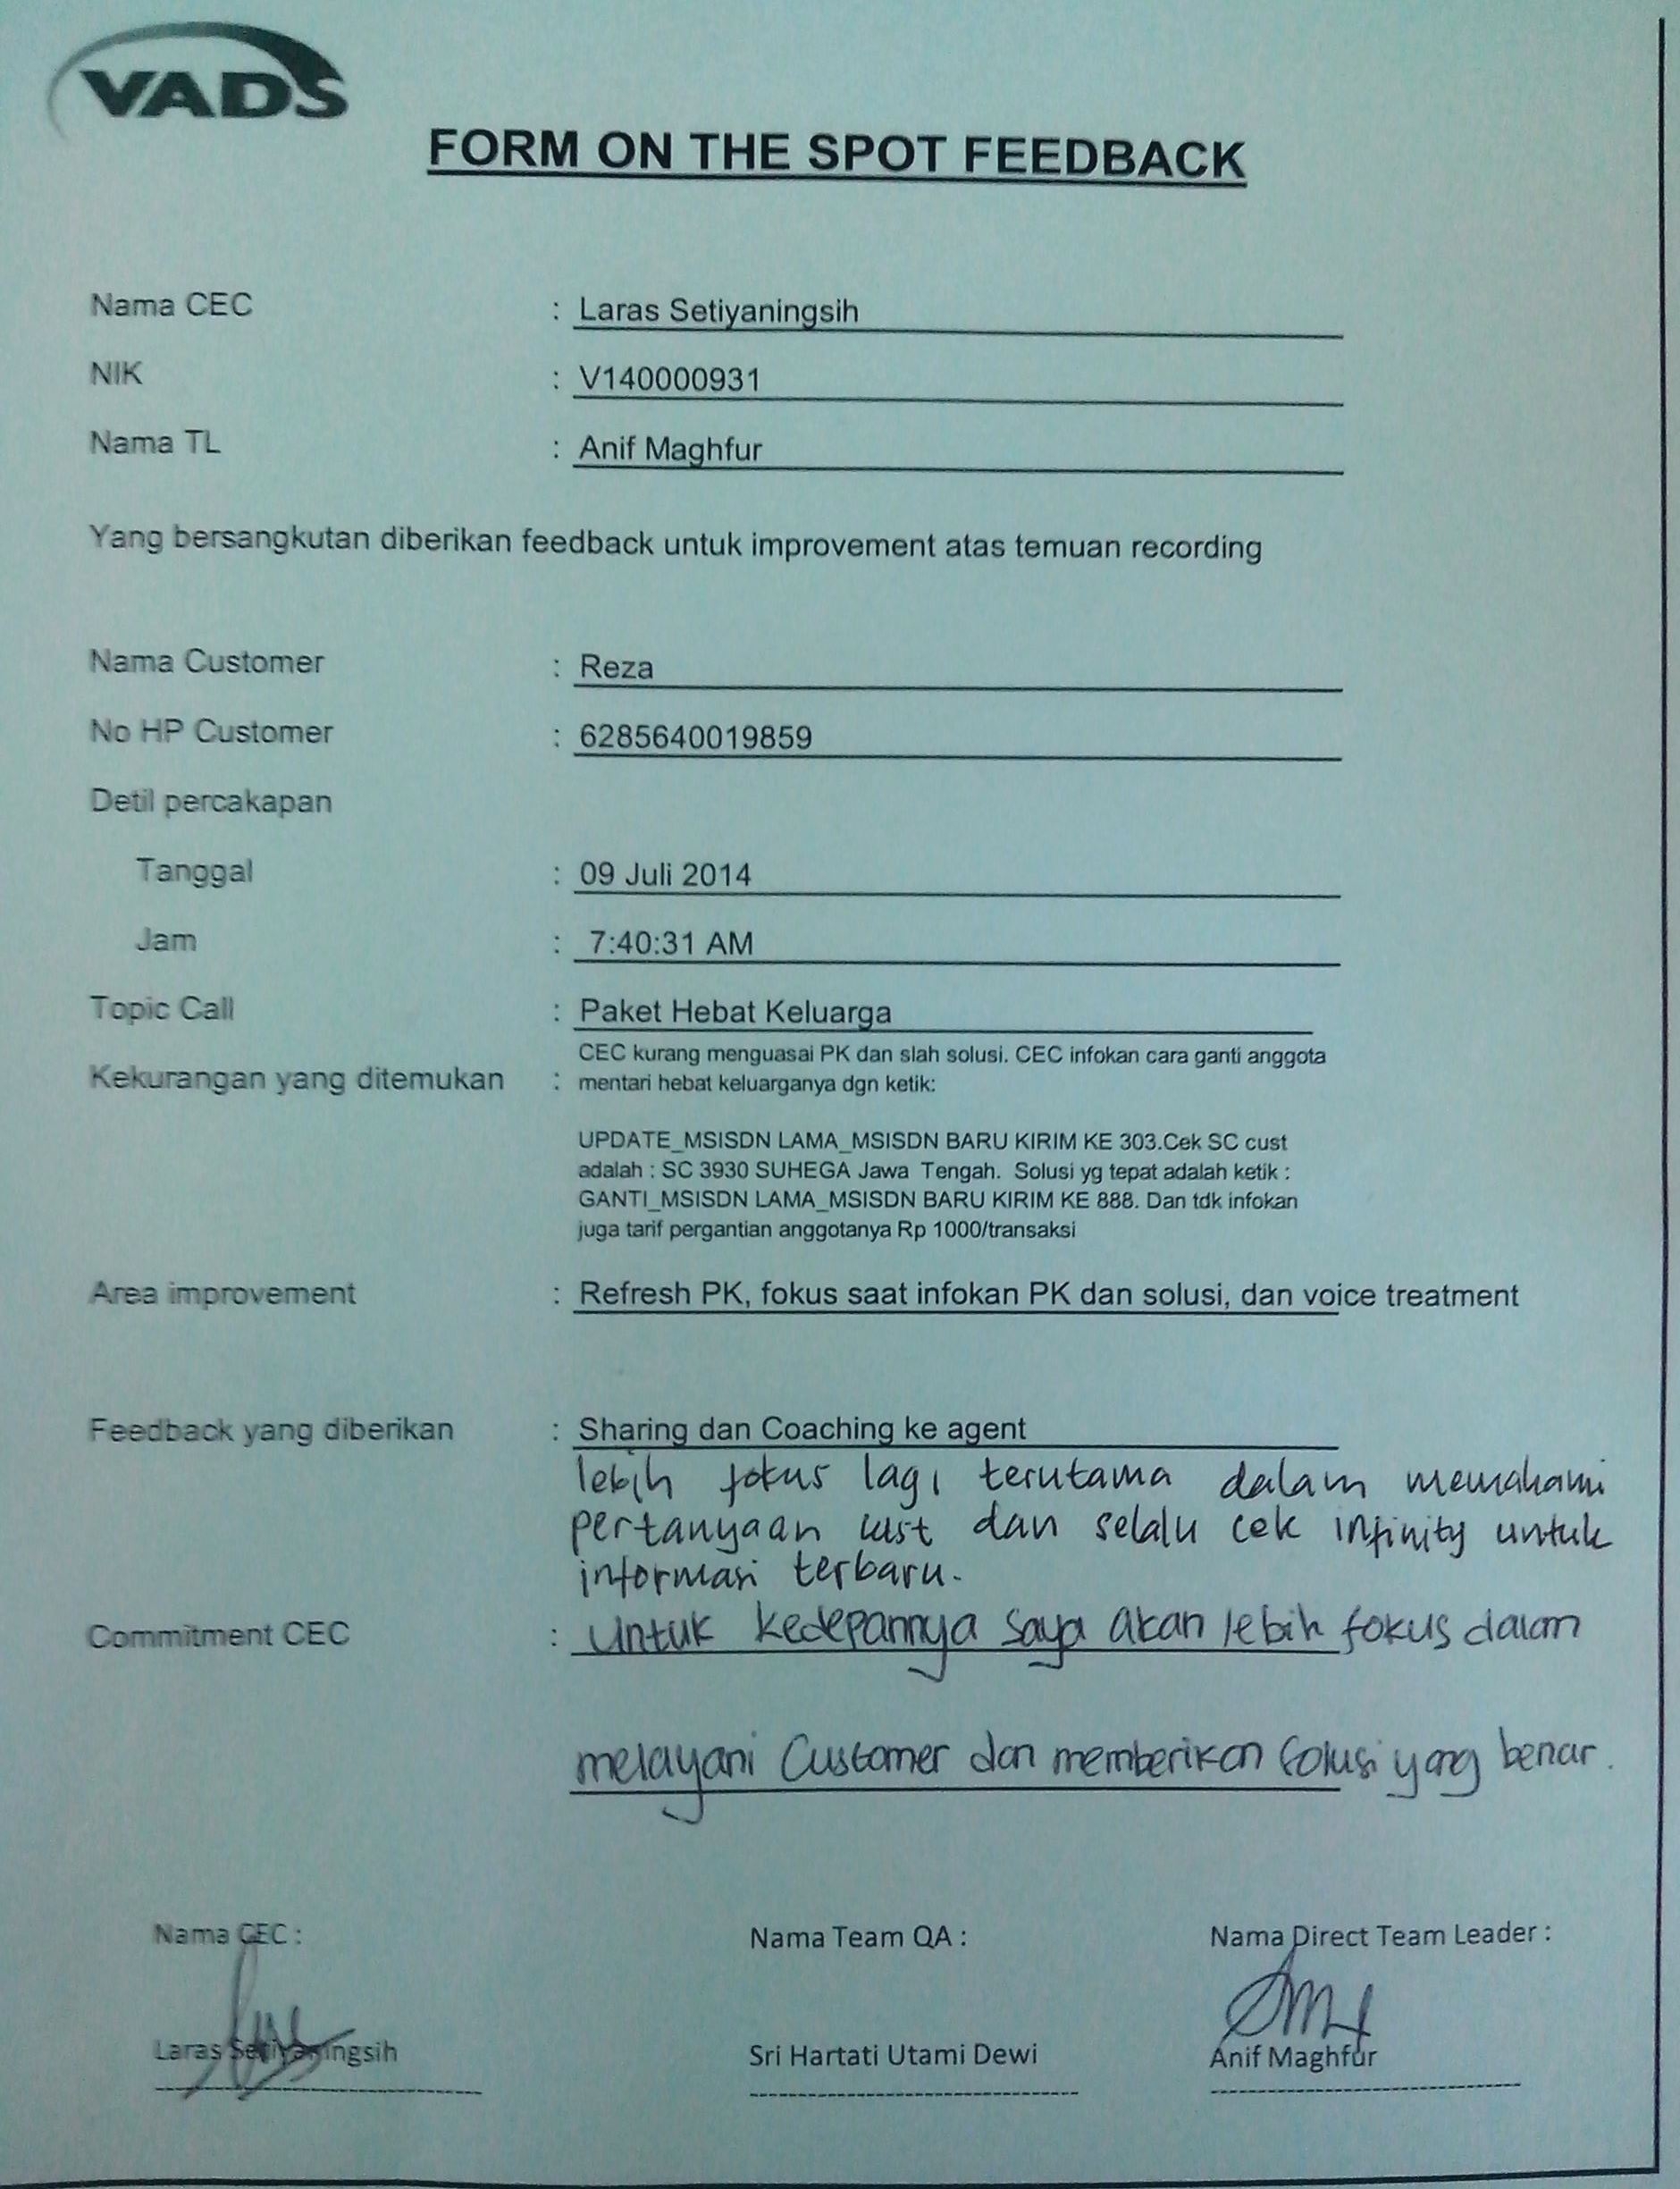 VADS
FORM ON THE SPOT FEEDBACK
Nama CEC : Laras Setiyaningsih
NIK : V140000931
Nama TL : Anif Maghfur
Yang bersangkutan diberikan feedback untuk improvement atas temuan recording
Nama Customer : Reza
No HP Customer : 6285640019859
Detil percakapan
Tanggal : 09 Juli 2014
Jam : 7:40:31 AM
Topic Call : Paket Hebat Keluarga
CEC kurang menguasai PK dan slah solusi. CEC infokan cara ganti anggota
Kekurangan yang ditemukan : mentari hebat keluarganya dgn ketik:
UPDATE_MSISDN LAMA_MSISDN BARU KIRIM KE 303.Cek SC cust
adalah : SC 3930 SUHEGA Jawa Tengah. Solusi yg tepat adalah ketik :
GANTI_MSISDN LAMA_MSISDN BARU KIRIM KE 888. Dan tdk infokan
juga tarif pergantian anggotanya Rp 1000/transaksi
Area improvement : Refresh PK, fokus saat infokan PK dan solusi, dan voice treatment
Feedback yang diberikan : Sharing dan Coaching ke agent
lebih fokus lagi terutama dalam memahami
pertanyaan cust dan selalu cek infinity untuk
informasi terbaru.
Commitment CEC : Untuk kedepannya saya akan lebih fokus dalam
melayani Customer dan memberikan Solusi yang benar.
Nama CEC : Nama Team QA : Nama Direct Team Leader :
Laras Setiyaningsih Sri Hartati Utami Dewi Anif Maghfur